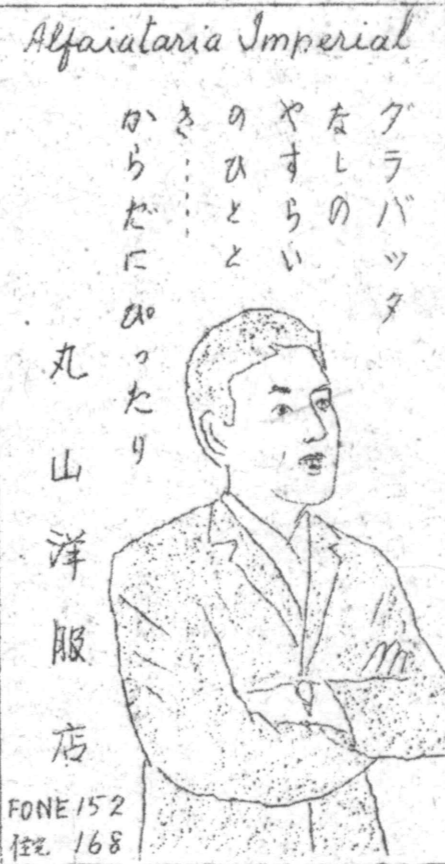 Alfaiataria Imperial
グラバッタ
なしの
やすらい
のひとと
き……
からだにぴったり
丸山洋服店
FONE 152
住宅 168